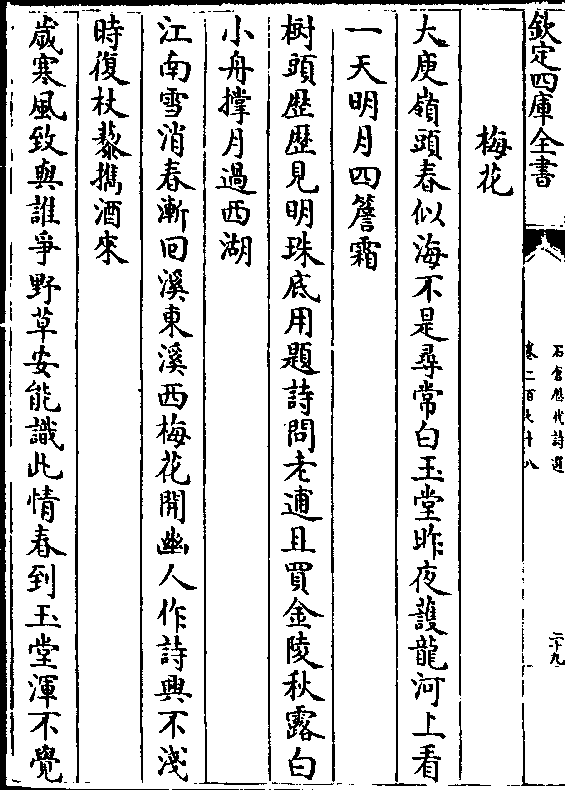 欽定四庫全書
石倉歴代詩選
二十九
梅花
大庾嶺頭春似海不是尋常白玉堂昨夜䕶龍河上看
一天明月四簷霜
樹頭歴歴見明珠底用題詩問老逋且買金陵秋露白
小舟撑月過西湖
江南雪消春漸回溪東溪西梅花開幽人作詩興不淺
時復杖藜攜酒來
嵗寒風致與誰爭野草安能識此情春到玉堂渾不覺